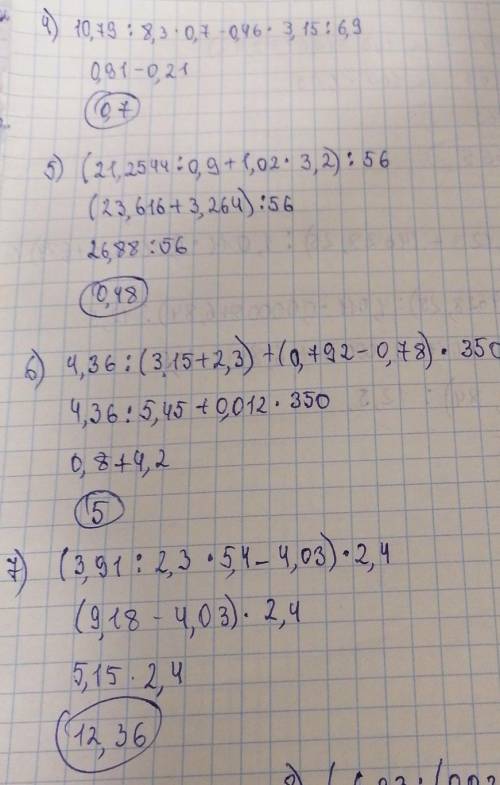 4) 10,79 : 8,3 · 0,7 - 0,46 · 3,15 : 6,9
0,91 - 0,21
0,7
5) (21,2544 : 0,9 + 1,02 · 3,2) : 56
(23,616 + 3,264) : 56
26,88 : 56
0,48
6) 4,36 : (3,15 + 2,3) + (0,792 - 0,78) · 350
4,36 : 5,45 + 0,012 · 350
0,8 + 4,2
5
7) (3,91 : 2,3 · 5,4 - 4,03) · 2,4
(9,18 - 4,03) · 2,4
5,15 · 2,4
12,36